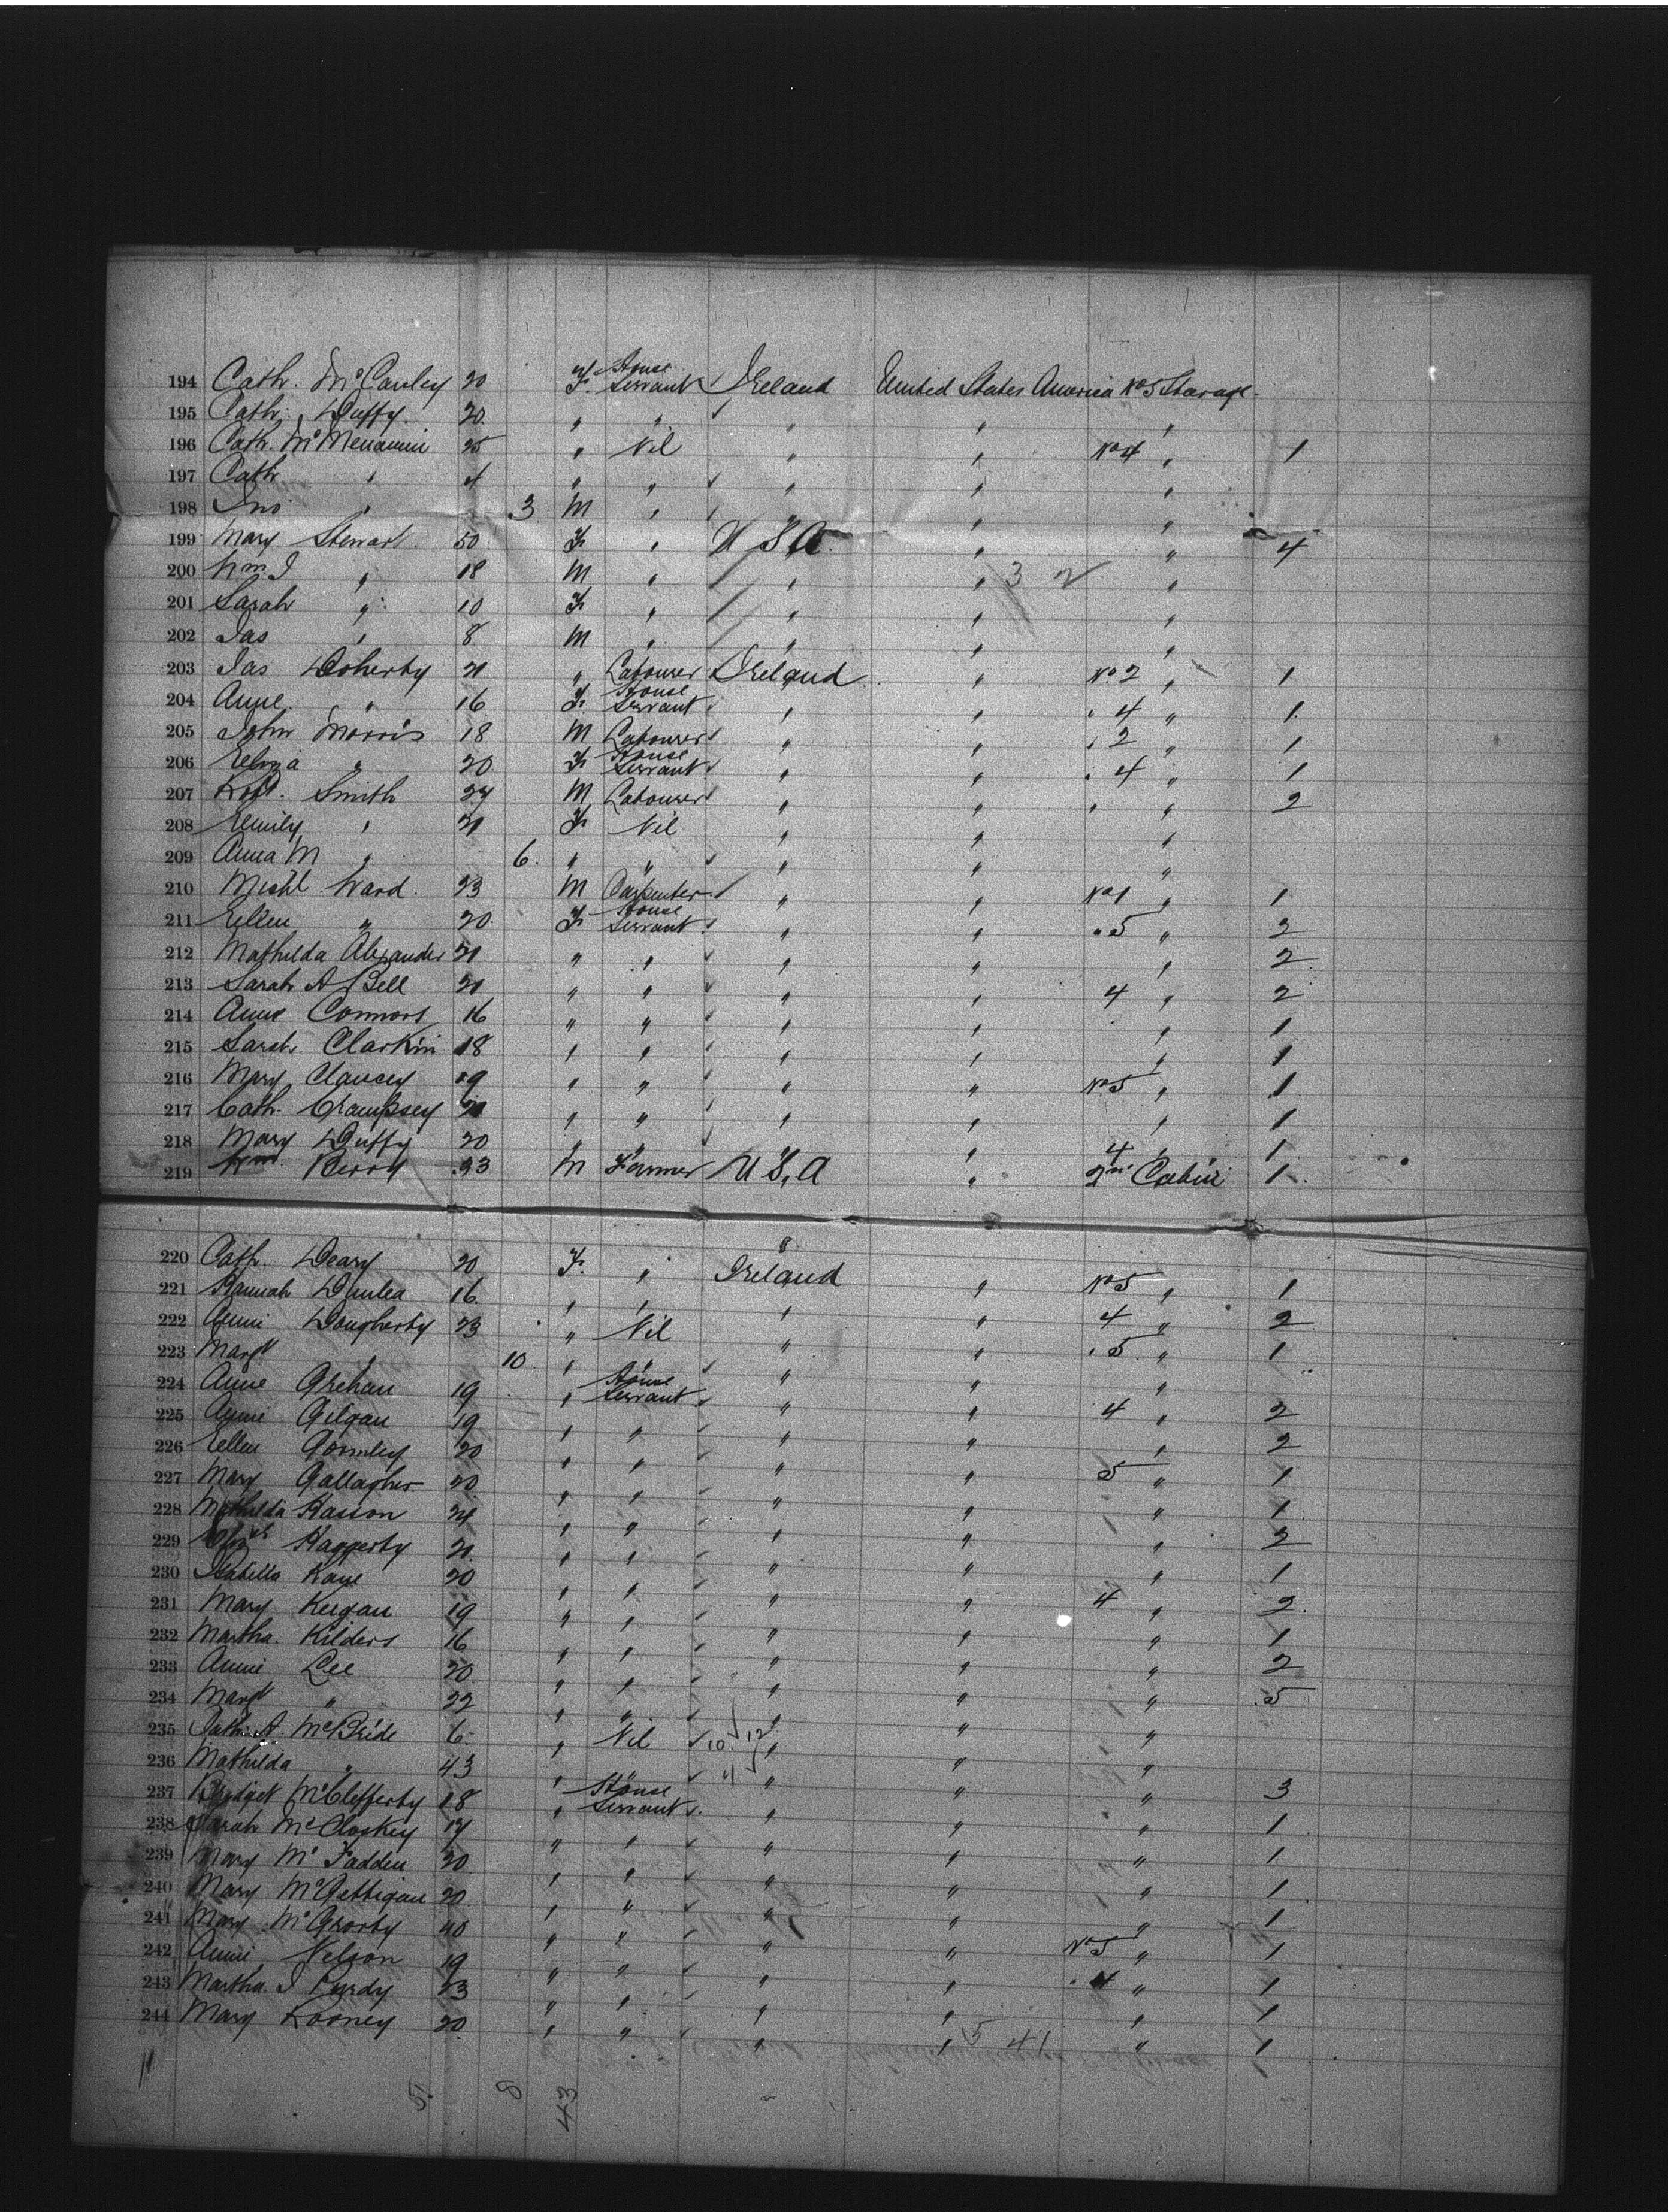 194 Cath. McCauley 20 F. House Servant Ireland United States America No 5 Starage
195 Cath. Duffy. 20. " " " " "
196 Cath. McMenamin 25 " Nil " " No 4 " 1
197 Cath " 4 " " " " "
198 Jno " 3 M " " " "
199 Mary Stewart. 50 F " U S A " " 4
200 Wm. J " 18 M " " " 3 2 "
201 Sarah " 10 F " " " "
202 Jas " 8 M " " " "
203 Jas Doherty 21 " Labourer Ireland " No 2 " 1
204 Anne " 16 F. House Servant " " " 4 " 1
205 John Morris 18 M Labourer " " " 2 " 1
206 Eliza " 20 F House Servant " " " 4 " 1
207 Robt. Smith 27 M Labourer " " " " 2
208 Emily " 21 F Nil " " "
209 Anna M " 6. " " " " "
210 Michl Ward. 23 M Carpenter " " No 1 " 1
211 Ellen " 20. F House Servant " " " 5 " 2
212 Mathilda Alexander 21 " " " " " 2
213 Sarah A Bell 21 " " " " 4 " 2
214 Anne Connors 16 " " " " " 1
215 Sarah Clarkin 18 " " " " " 1
216 Mary Clancey 19 " " " " No 5 " 1
217 Cath. Crampsey 21 " " " " " 1
218 Mary Duffy 20 " " " 4 " 1
219 Wm. Berry 33 M Farmer U S, A " 2nd Cabin 1
220 Cath. Deary 20 F. " Ireland " No 5 " 1
221 Hannah 16. " " " " 4 " 2
222 Annie Dougherty 23 " Nil " " " 5 " 1
223 Margt " 10 " " " " "
224 Anne Grehan 19 " House Servant " " 4 " 2
225 Annie Gilgan 19 " " " " " 2
226 Ellen Gormley 20 " " " " 5 " 1
227 Mary Gallagher 20. " " " " " 1
228 Mathilda Hasson 24 " " " " " 2
229 Elizth Haggerty 21. " " " " " 1
230 Isabella Kaye 20 " " " " 4 " 2.
231 Mary Keegan 19 " " " " " 1
232 Martha. Kilders 16 " " " " " 2
233 Annie Lee 20 " " " " " 5
234 Margt " 22 " " " " "
235 Cath. A. McBride 6 " Nil 10 12 " " "
236 Mathilda " 43 " 11 " " " 3
237 Bridget McClefferty 18 " House Servant " " " 1
238 Sarah McCloskey 17 " " " " " 1
239 Mary McFadden 20 " " " " " 1
240 Mary McGettigan 20 " " " " " 1
241 Mary McGrorty 40 " " " " No 5 " 1
242 Annie Nelson 19 " " " " " 4 " 1
243 Martha. J Purdy 23 " " " " " 1
244 Mary Rooney 20. " " " " 5 41 " 1
11 51. 8 43